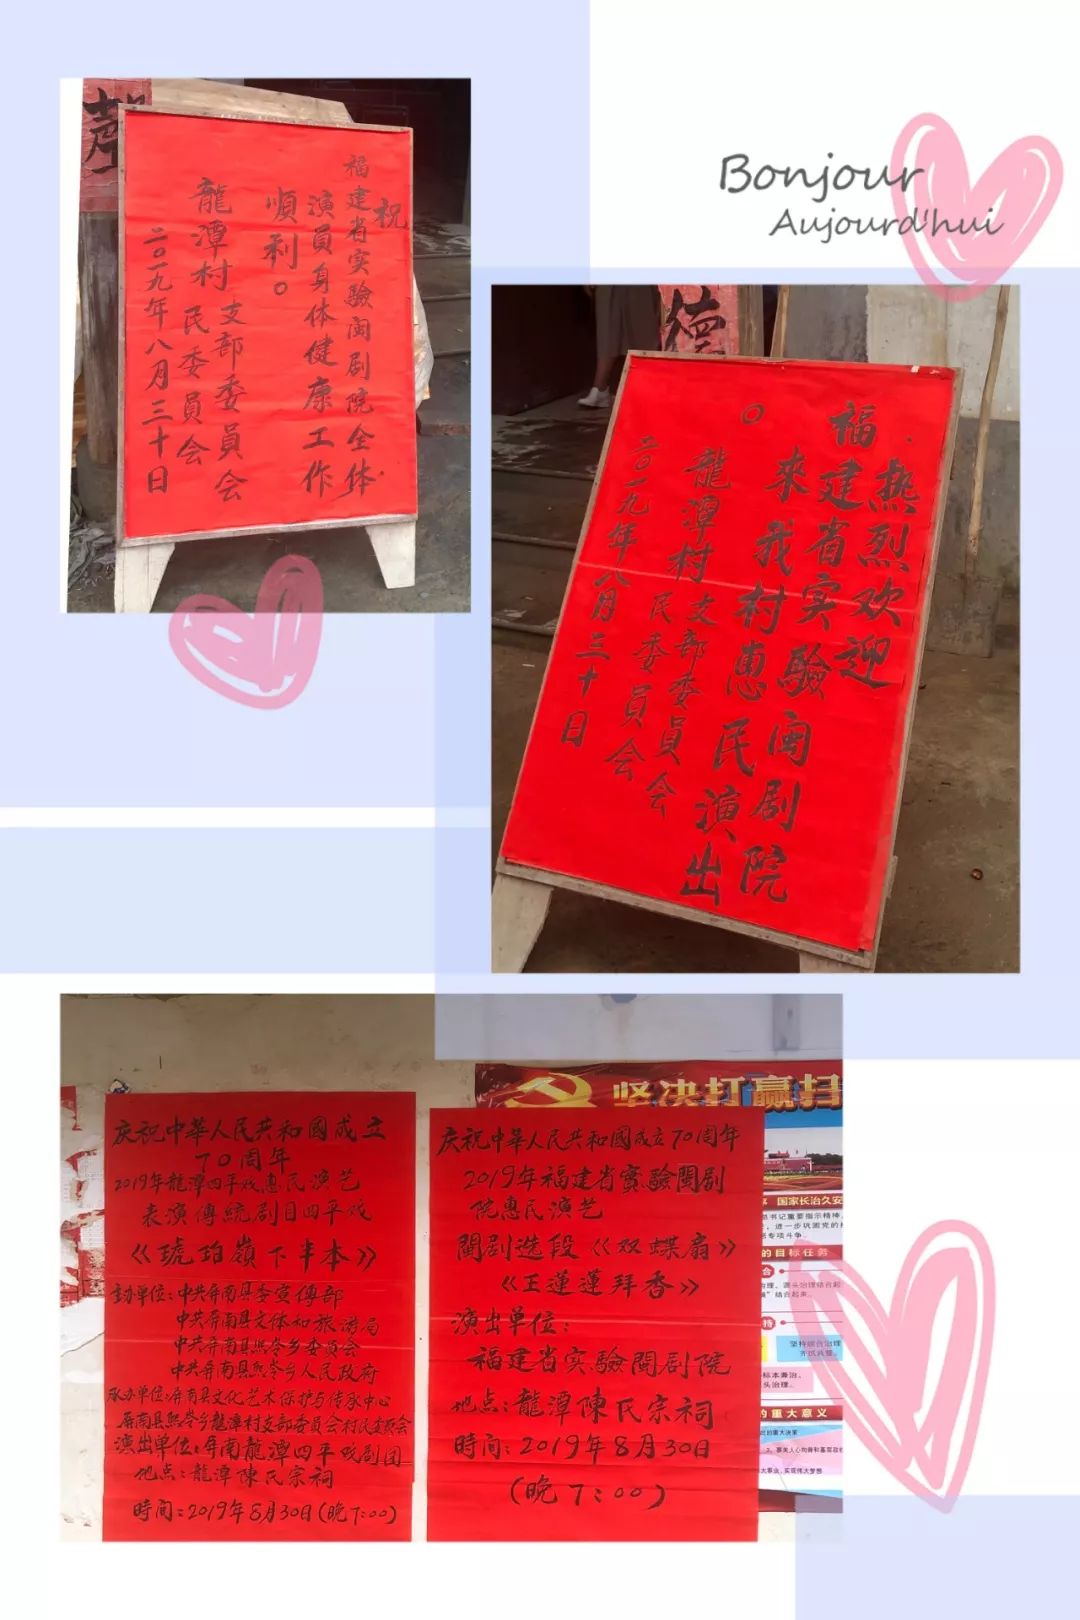 Bonjour
Aujourd'hui
祝
福建省实驗闽剧院全体
演員身体健康工作
順利。
龍潭村支部委員会
民委員会
二〇一九年八月三十日
德
热烈欢迎
福建省实驗闽剧院
來我村惠民演出
。
龍潭村支部委員会
民委員会
二〇一九年八月三十日
庆祝中華人民共和國成立
70周年
2019年龍潭四平戏惠民演艺
表演傳統剧目四平戏
《琥珀嶺下半本》
主办单位:中共屏南县委宣傳部
中共屏南县文体和旅游局
中共屏南县熙岺乡委員会
中共屏南县熙岺乡人民政府
承办单位:屏南县文化艺术保护与传承中心
屏南县熙岺乡龍潭村支部委員会村民委員会
演出单位:屏南龍潭四平戏剧团
地点:龍潭陳氏宗祠
時间:2019年8月30日(晚7:00)
庆祝中華人民共和國成立70周年
2019年福建省實驗閩剧
院惠民演艺
閩剧选段《双蝶扇》
《王蓮蓮拜香》
演出单位:
福建省实驗閩剧院
地点:龍潭陳氏宗祠
時间:2019年8月30日
(晚7:00)
坚决打赢扫
国家长治久安
书记重要指示精神,
进一步巩固党的
专项斗争
的目标任务
坚持综合治理
标本兼治,
的重大意义